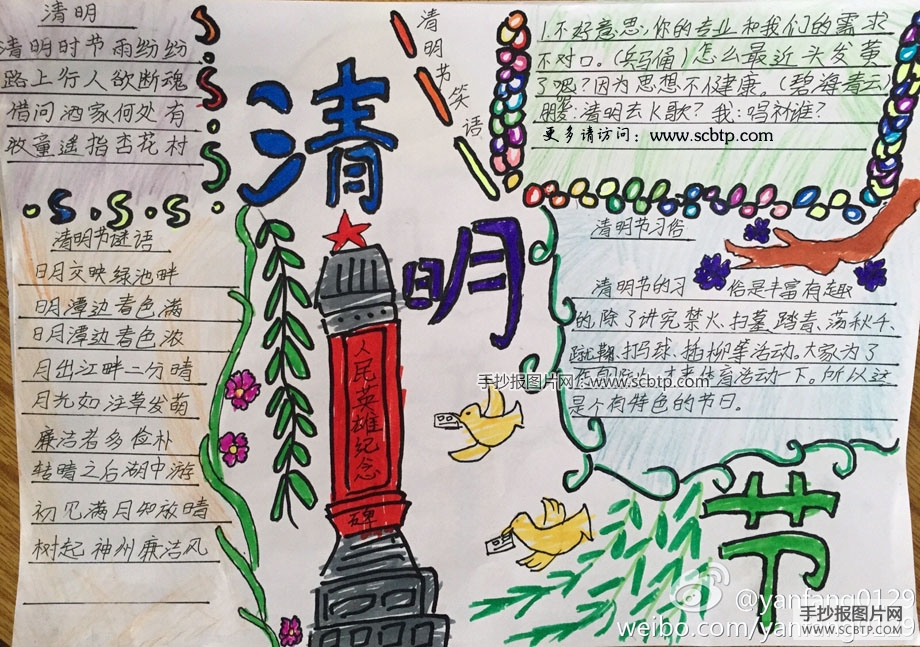 清明
清明时节雨纷纷
路上行人欲断魂
借问酒家何处有
牧童遥指杏花村
清明节谜语
日月交映绿池畔
明潭边春色满
日月潭边春色浓
月出江畔二分晴
月光如注草发萌
廉洁者多俭朴
转晴之后湖中游
初见满月知放晴
树起神州廉洁风
清
明
节
人民英雄纪念碑
清明节笑语
1.不好意思,你的专业和我们的需求
不对口。(兵马俑)怎么最近头发黄
了呢?因为思想不健康。(碧海青云
朋:清明去K歌?我:唱祢谁?
更多请访问:www.scbtp.com
清明节习俗
清明节的习俗是丰富有趣
的,除了讲究禁火、扫墓、踏青、荡秋千、
蹴鞠、打马球、插柳等活动。大家为了
体育活动一下。所以这
是个有特色的节日。
手抄报图片网:www.scbtp.com
@yanfang0129
weibo.com/yanfang0129
手抄报图片网
WWW.SCBTP.COM